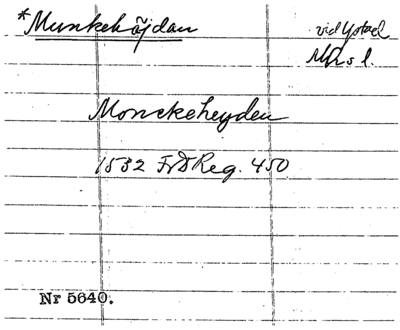 *Munkehöjdan vid Ystad
Mhs l.
Monckeheyden
1532 FrdReg. 450
Nr 5640.